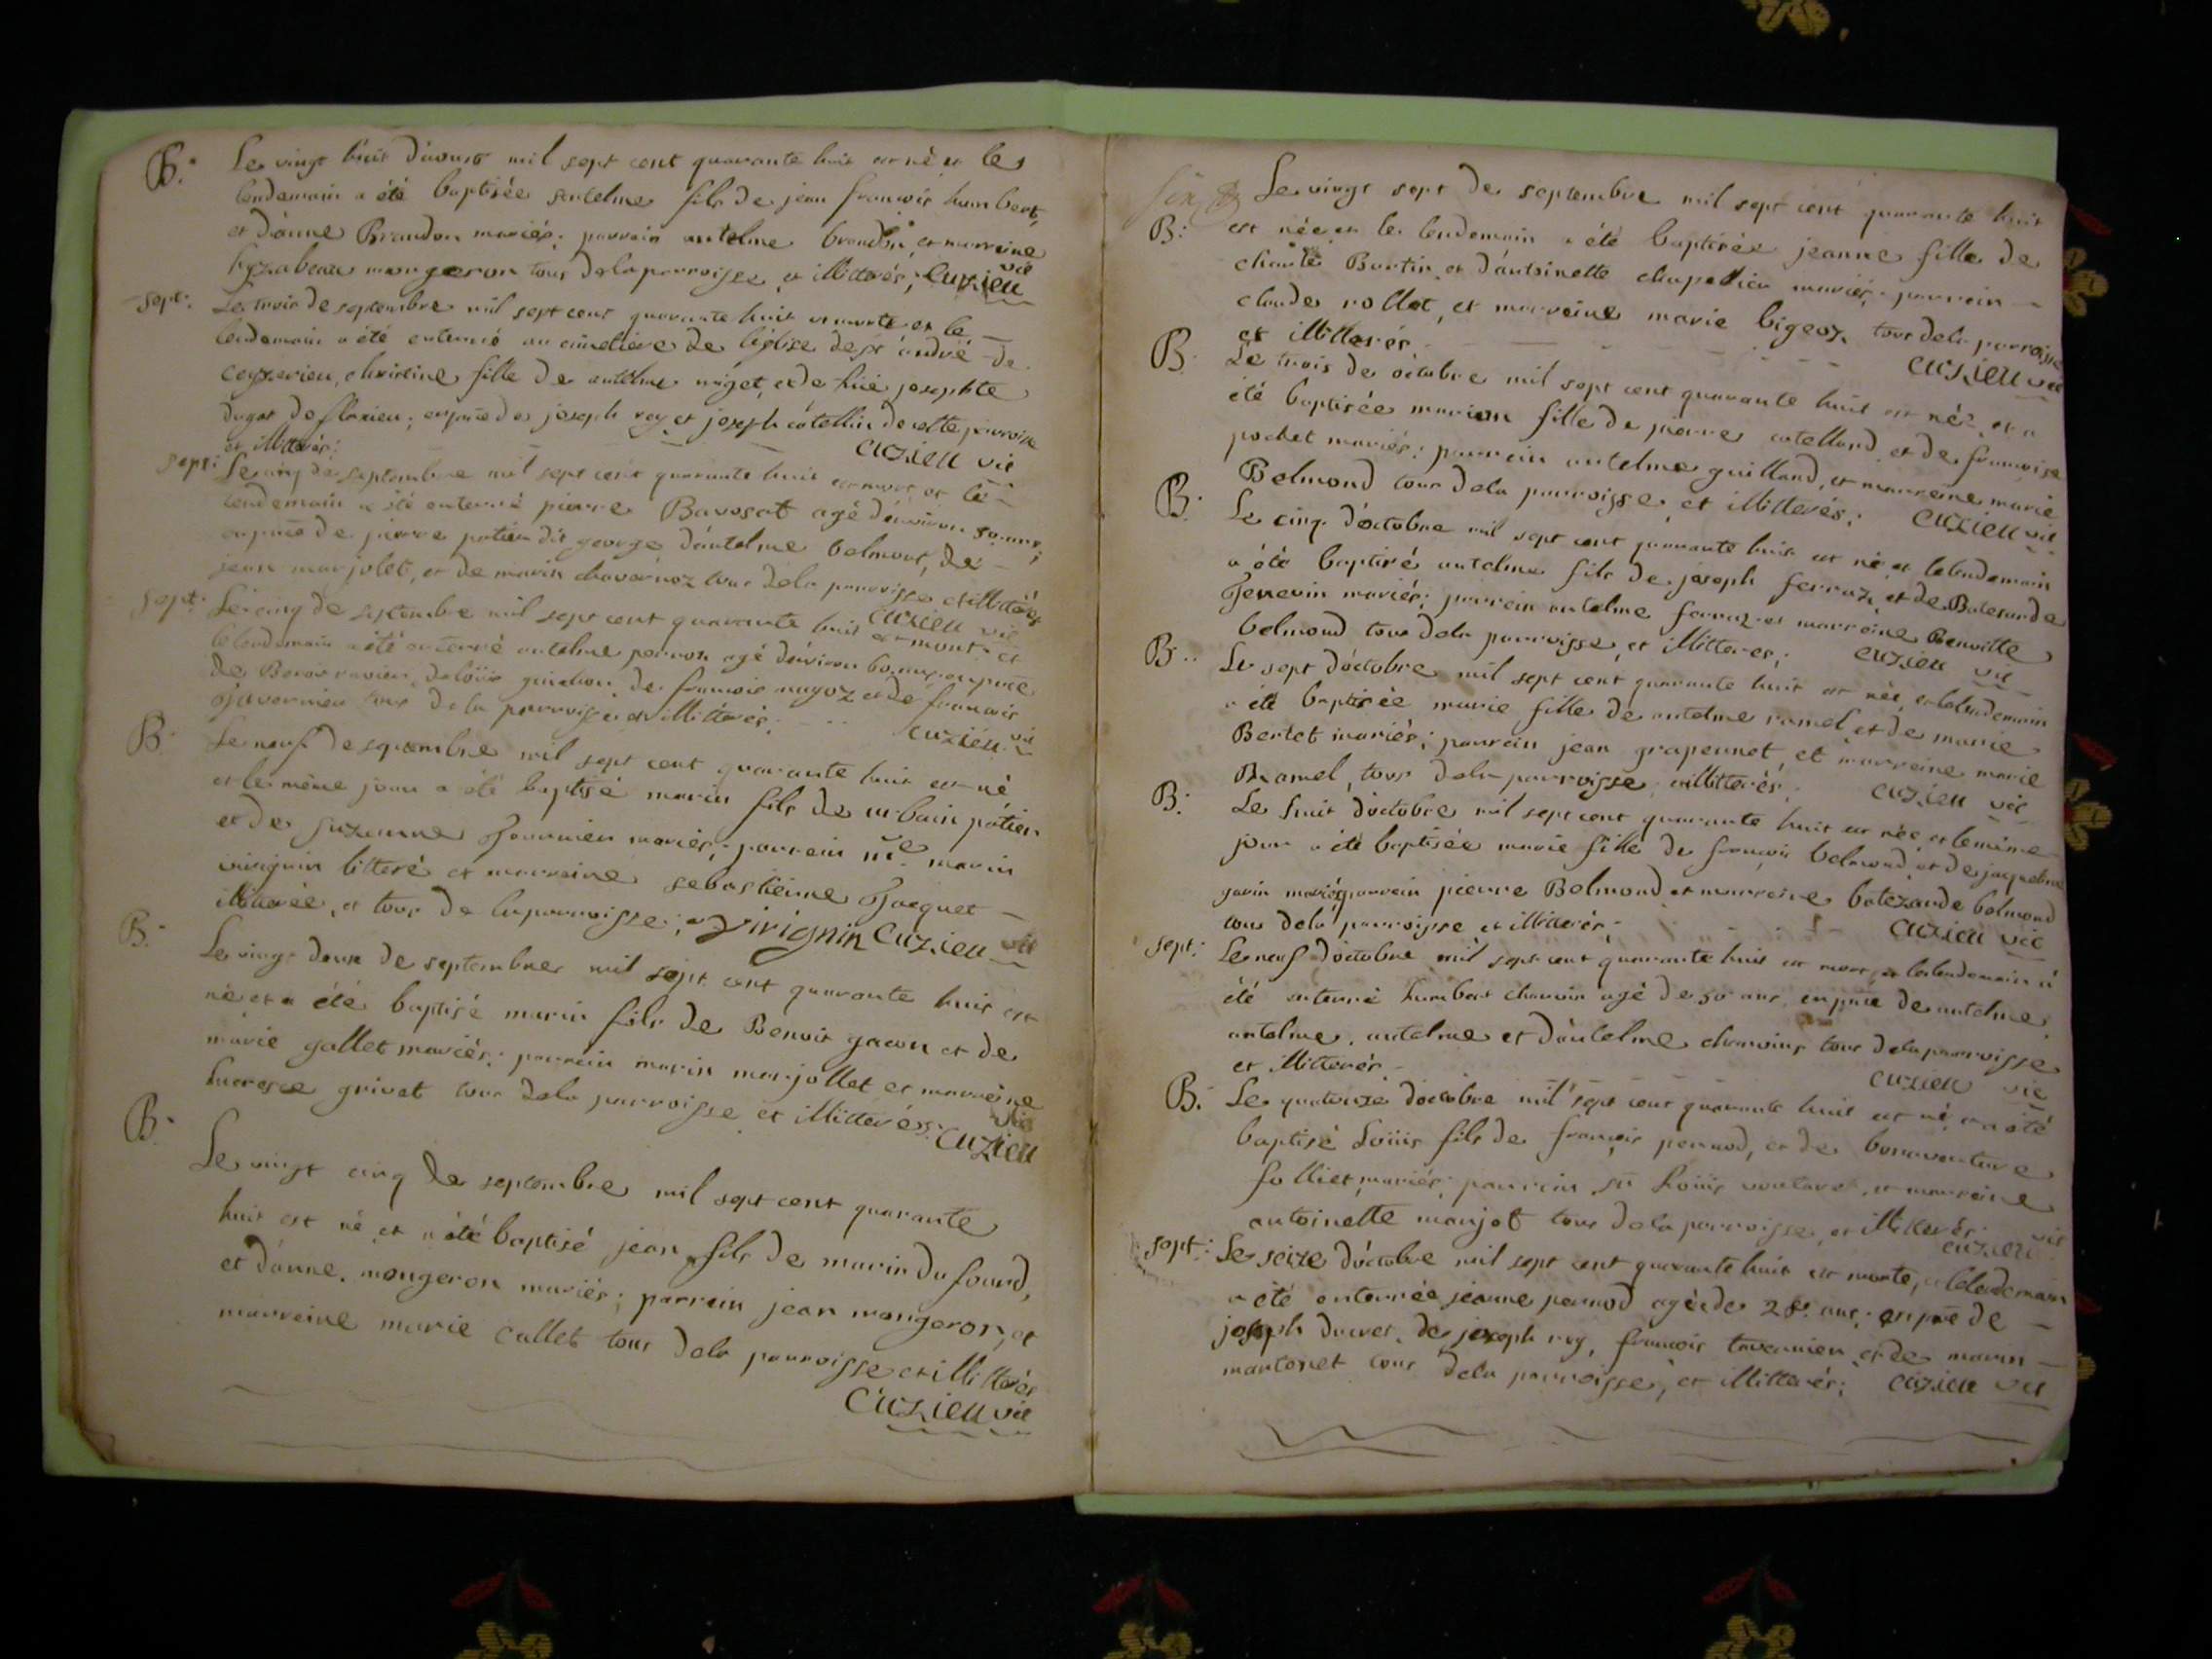 B. Le vingt huit d'aoust mil sept cent quarante huit est né et le
lendemain a été baptisée antelme fils de jean françois humbert,
et d'anne Brandon mariés; parrain antelme brandon, et marreine
hyzabeau mongeron tous de la parroisse, et illitterés; Cuzieu vic
sept: Le trois de septembre mil sept cent quarante huit est morte et le
lendemain a été enterré au cimetiere de l'église de st andré de
ceyzerieu, christine fille de antelme miget, et de fuë josephte
dugat de flaxieu; en pñce de joseph rey et joseph catellin de cette parroisse
et illitterés: Cuzieu vic
sept: Le cinq de septembre mil sept cent quarante huit est mort et le
lendemain a été enterré pierre Bavosat agé d'environ 50 ans;
en pñce de pierre patier dit george d'antelme belmont, de
jean marjolet, et de marin chavornoz tous de la parroisse et illitterés
Cuzieu vic
sept: Le cinq de septembre mil sept cent quarante huit est mort et
le lendemain a été enterré antelme perron agé d'environ 60 ans; en pñce
de Benoit ravier, de loüis guichon, de françois mugoz et de françois
Tavernier tous de la parroisse et illitterés; Cuzieu vic
B. Le neuf de septembre mil sept cent quarante huit est né
et le même jour a été baptisé marin fils de urbain pâtier
et de suzanne Fournier mariés; parrein me marin
virignin litteré et marreine sebastienne Jacquet
illitterée, et tous de la parroisse; Virignin Cuzieu vic
B. Le vingt deux de septembre mil sept cent quarante huit est
né et a été baptisé marin fils de Benoit gacon et de
marie gallet mariés; parrein marin marjollet et marreine
lucresce grivet tous de la parroisse et illitterés; Cuzieu vic
B. Le vingt cinq de septembre mil sept cent quarante
huit est né et a été baptisé jean fils de marin du fourd,
et d'anne mongeron mariés; parrein jean mongeron, et
marreine marie callet tous de la parroisse et illitterés
Cuzieu vic
Le vingt sept de septembre mil sept cent quarante huit
B: est née et le lendemain a été baptisée jeanne fille de
claude Burtin et d'antoinette chapellier mariés; parrein
claude rollet, et marreine marie bigeoz, tous de la parroisse
et illitterés. Cuzieu vic
B. Le trois de octobre mil sept cent quarante huit est née, et a
été baptisée marion fille de pierre catelland, et de françoise
pochet mariés; parrein antelme guilland, et marreine marie
Belmond tous de la parroisse, et illitterés; Cuzieu vic
B. Le cinq d'octobre mil sept cent quarante huit est né et le lendemain
a été baptisé antelme fils de joseph ferraz, et de Batezarde
Jenevin mariés; parrein antelme ferraz et marreine Benoitte
belmond tous de la parroisse, et illitterés; Cuzieu vic
B. Le sept d'octobre mil sept cent quarante huit est née, et le lendemain
a été baptisée marie fille de antelme ramel, et de marie
Bertet mariés; parrein jean grapennet, et marreine marie
Ramel, tous de la parroisse, et illitterés; Cuzieu vic
B. Le huit d'octobre mil sept cent quarante huit est née, et le même
jour a été baptisée marie fille de françois belmond, et de jaqueline
gavin mariés; parrein pierre Belmond et marreine batezarde belmond
tous de la parroisse et illitterés; Cuzieu vic
sept: Le neuf d'octobre mil sept cent quarante huit est mort, et le lendemain a
été enterré humbert chauvin agé de 50 ans, en pñce de antelme
antelme, antelme et d'antelme chauvins tous de la parroisse
et illitterés Cuzieu vic
B. Le quatorze d'octobre mil sept cent quarante huit est né, et a été
baptisé Loüis fils de françois pernod, et de bonaventure
folliet mariés; parrein sr Loüis, et marreine
antoinette marjot tous de la parroisse, et illitterés; Cuzieu vic
sept: Le seize d'octobre mil sept cent quarante huit est morte, et le lendemain
a été enterrée jeanne pernod agée de 28. ans; en pñce de
joseph ducret, de joseph rey, françois tavernier, et de marin
martenet tous de la parroisse, et illitterés; Cuzieu vic